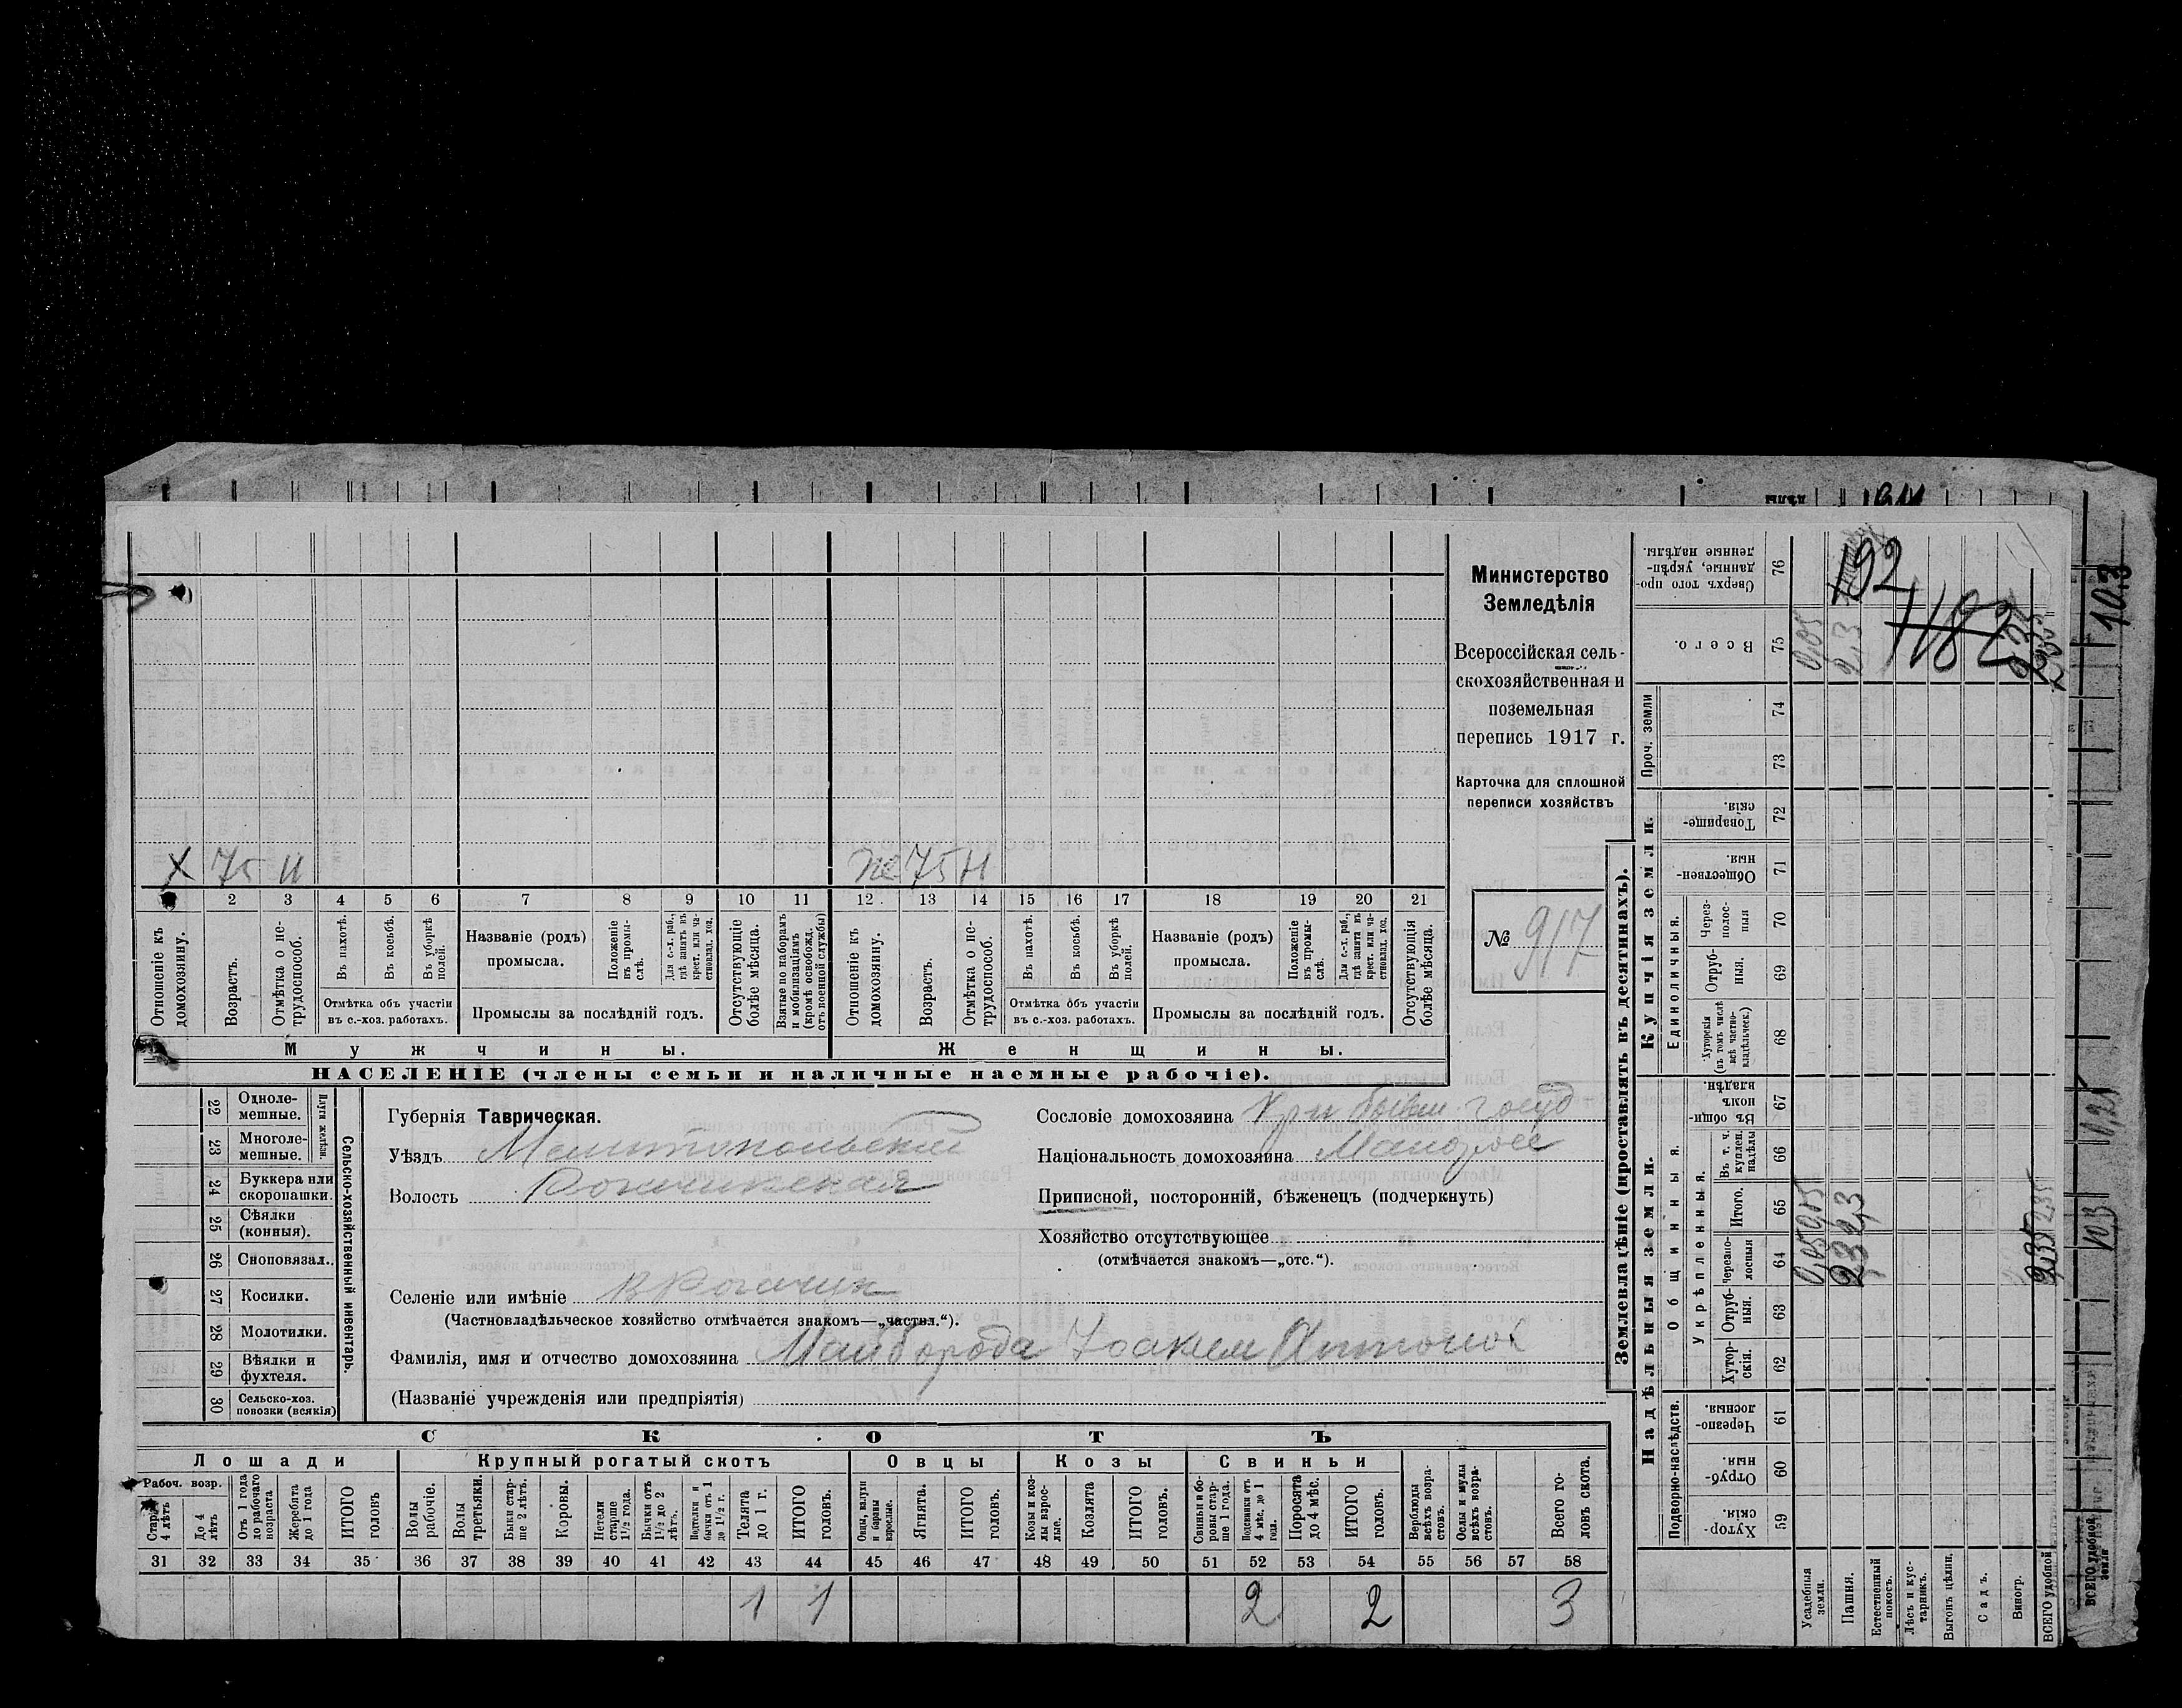 Министерство
Земледѣлія
Всероссійская сель-
скохозяйственная и
поземельная
перепись 1917 г.
Карточка для сплошной
переписи хозяйствъ
№ 917
Х 75 Н
же 75 Н
1 2 3 4 5 6 7 8 9 10 11 12 13 14 15 16 17 18 19 20 21
Отношеніе къ домохозяину.
Возрастъ.
Отмѣтка о не-трудоспособ.
Въ пахотѣ.
Въ косьбѣ.
Въ уборкѣ полей.
Отмѣтка объ участіи
въ с.-хоз. работахъ.
Названіе (родъ)
промысла.
Положеніе въ промы-слѣ.
Для с.-х. раб., гдѣ занятъ въ крест. или ча-стновлад. хоз.
Промыслы за послѣдній годъ.
Отсутствующіе болѣе мѣсяца.
Взятые по наборамъ и мобилизаціямъ (кромѣ освобожд. отъ военной службы)
Отношеніе къ домохозяину.
Возрастъ.
Отмѣтка о не-трудоспособ.
Въ пахотѣ.
Въ косьбѣ.
Въ уборкѣ полей.
Отмѣтка объ участіи
въ с.-хоз. работахъ.
Названіе (родъ)
промысла.
Положеніе въ промы-слѣ.
Для с.-х. раб., гдѣ занята въ крест. или ча-стновлад. хоз.
Промыслы за послѣдній годъ.
Отсутствующія болѣе мѣсяца.
Мужчины.
Женщины.
НАСЕЛЕНІЕ (члены семьи и наличные наемные рабочіе).
22 Одноле-мешные.
23 Многоле-мешные.
Плуги желѣзн.
24 Буккера или скоропашки.
25 Сѣялки (конныя).
26 Сноповязал.
27 Косилки.
28 Молотилки.
29 Вѣялки и фухтеля.
30 Сельско-хоз. повозки (всякія)
Сельско-хозяйственный инвентарь.
Губернія Таврическая.
Уѣздъ Мелитопольскій
Волость Рогачикская
Сословіе домохозяина Кр н бывш. госуд
Національность домохозяина Малорос
Приписной, посторонній, бѣженецъ (подчеркнуть)
Хозяйство отсутствующее
(отмѣчается знакомъ—„отс.“).
Селеніе или имѣніе В Рогачик
(Частновладѣльческое хозяйство отмѣчается знакомъ—„частвл.“).
Фамилія, имя и отчество домохозяина Майборода Иоаким Антонов
(Названіе учрежденія или предпріятія)
СКОТЪ
Лошади
Крупный рогатый скотъ
Овцы
Козы
Свиньи
Рабоч. возр.
Старше 4 лѣтъ
До 4 лѣтъ
Отъ 1 года до рабочаго возраста
Жеребята до 1 года
ИТОГО головъ
Волы рабочіе.
Волы третьяки.
Быки стар-ше 2 лѣтъ.
Коровы.
Нетели старше 1 1/2 года.
Бычки отъ 1 1/2 до 2 лѣтъ.
Подтелки и бычки отъ 1 до 1 1/2 г.
Телята до 1 г.
ИТОГО головъ.
Овцы, валухи и бараны взрослые.
Ягнята.
ИТОГО головъ.
Козы и коз-лы взрос-лые.
Козлята
ИТОГО головъ.
Свиньи и бо-ровы стар-ше 1 года.
Подсвинки отъ 4 мѣс. до 1 года.
Поросята до 4 мѣс.
ИТОГО головъ.
Верблюды всѣхъ возра-стовъ.
Ослы и мулы всѣхъ возра-стовъ.
Всего го-ловъ скота.
31 32 33 34 35 36 37 38 39 40 41 42 43 44 45 46 47 48 49 50 51 52 53 54 55 56 57 58
1 1 2 2 3
Землевладѣніе (проставлять въ десятинахъ).
Надѣльныя земли.
Купчія земли.
Проч. земли
Подворно-наслѣдств.
Общинныя.
Укрѣпленныя.
Единоличныя.
Хутор-скія. 59
Отруб-ныя. 60
Черезпо-лосныя. 61
Хутор-скія. 62
Отруб-ныя. 63
Черезпо-лосныя 64
Итого. 65
Въ т. ч. куплен. надѣлы 66
Въ общи-номъ владѣн. 67
Хуторскія (въ томъ числѣ всѣ частно-владѣльческ.) 68
Отруб-ныя. 69
Через-полос-ныя 70
Обществен-ныя. 71
Товарище-скія. 72
73
74
Всего. 75
Сверхъ того про-данные, укрѣп-ленные надѣлы. 76
Усадебныя земли. 0,05 0,05 0,05
Пашня. 2,3 2,3 2,3
Естественный покосъ.
Лѣсъ и кус-тарникъ.
Выгонъ цѣлин.
Садъ.
Виногр.
ВСЕГО удобной 2,35 2,35 2,35
192
1182
10,3
0,25
10,3
ВСЕГО удобной земли